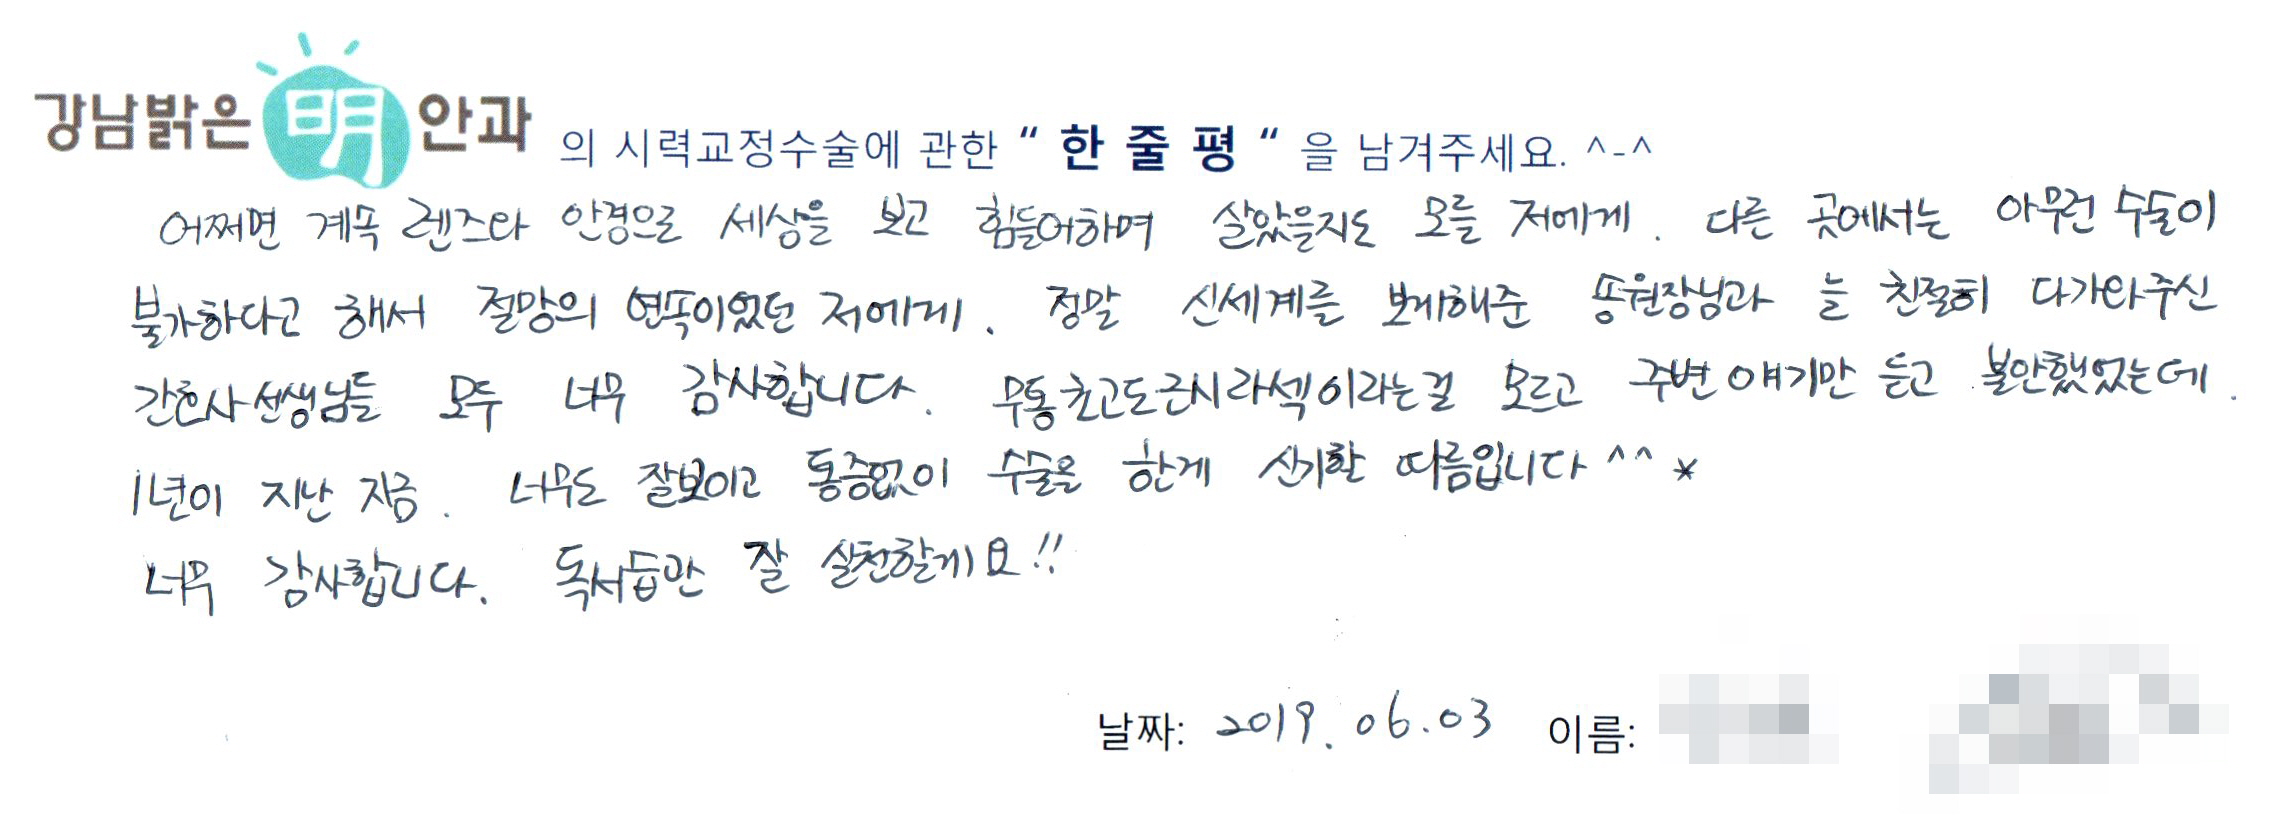 강남밝은 明 안과 의 시력교정수술에 관한 “ 한 줄 평 “ 을 남겨주세요. ^-^
어쩌면 계속 렌즈와 안경으로 세상을 보고 힘들어하며 살았을지도 모를 저에게. 다른 곳에서는 아무런 수술이
불가하다고 해서 절망의 연속이었던 저에게. 정말 신세계를 보게해준 송원장님과 늘 친절히 다가와주신
간호사선생님들 모두 너무 감사합니다. 무통초고도근시라섹이라는걸 모르고 주변 얘기만 듣고 불안했었는데.
1년이 지난 지금. 너무도 잘보이고 통증없이 수술을 한게 신기할 따름입니다^^*
너무 감사합니다. 독서습관 잘 실천할게요!!
날짜: 2019.06.03 이름: